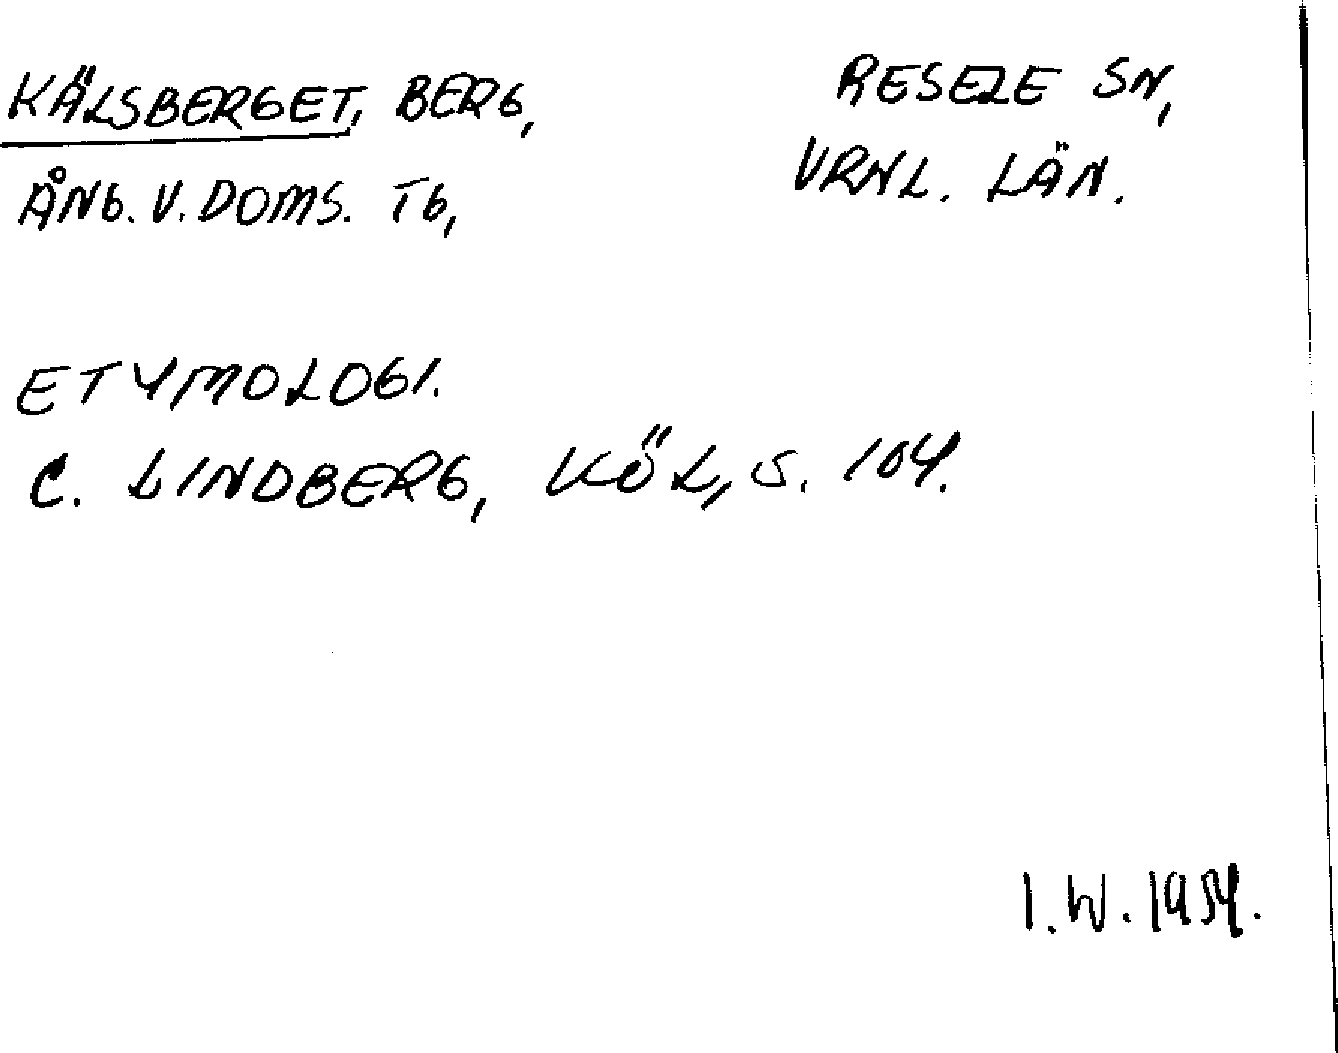 KÄLSBERGET, BERG,
RESELE SN,
ÅNG. V. DOMS. TG,
VRNL. LÄN.
ETYMOLOGI.
C. LINDBERG, KÖL, S. 104.
I.W. 1954.